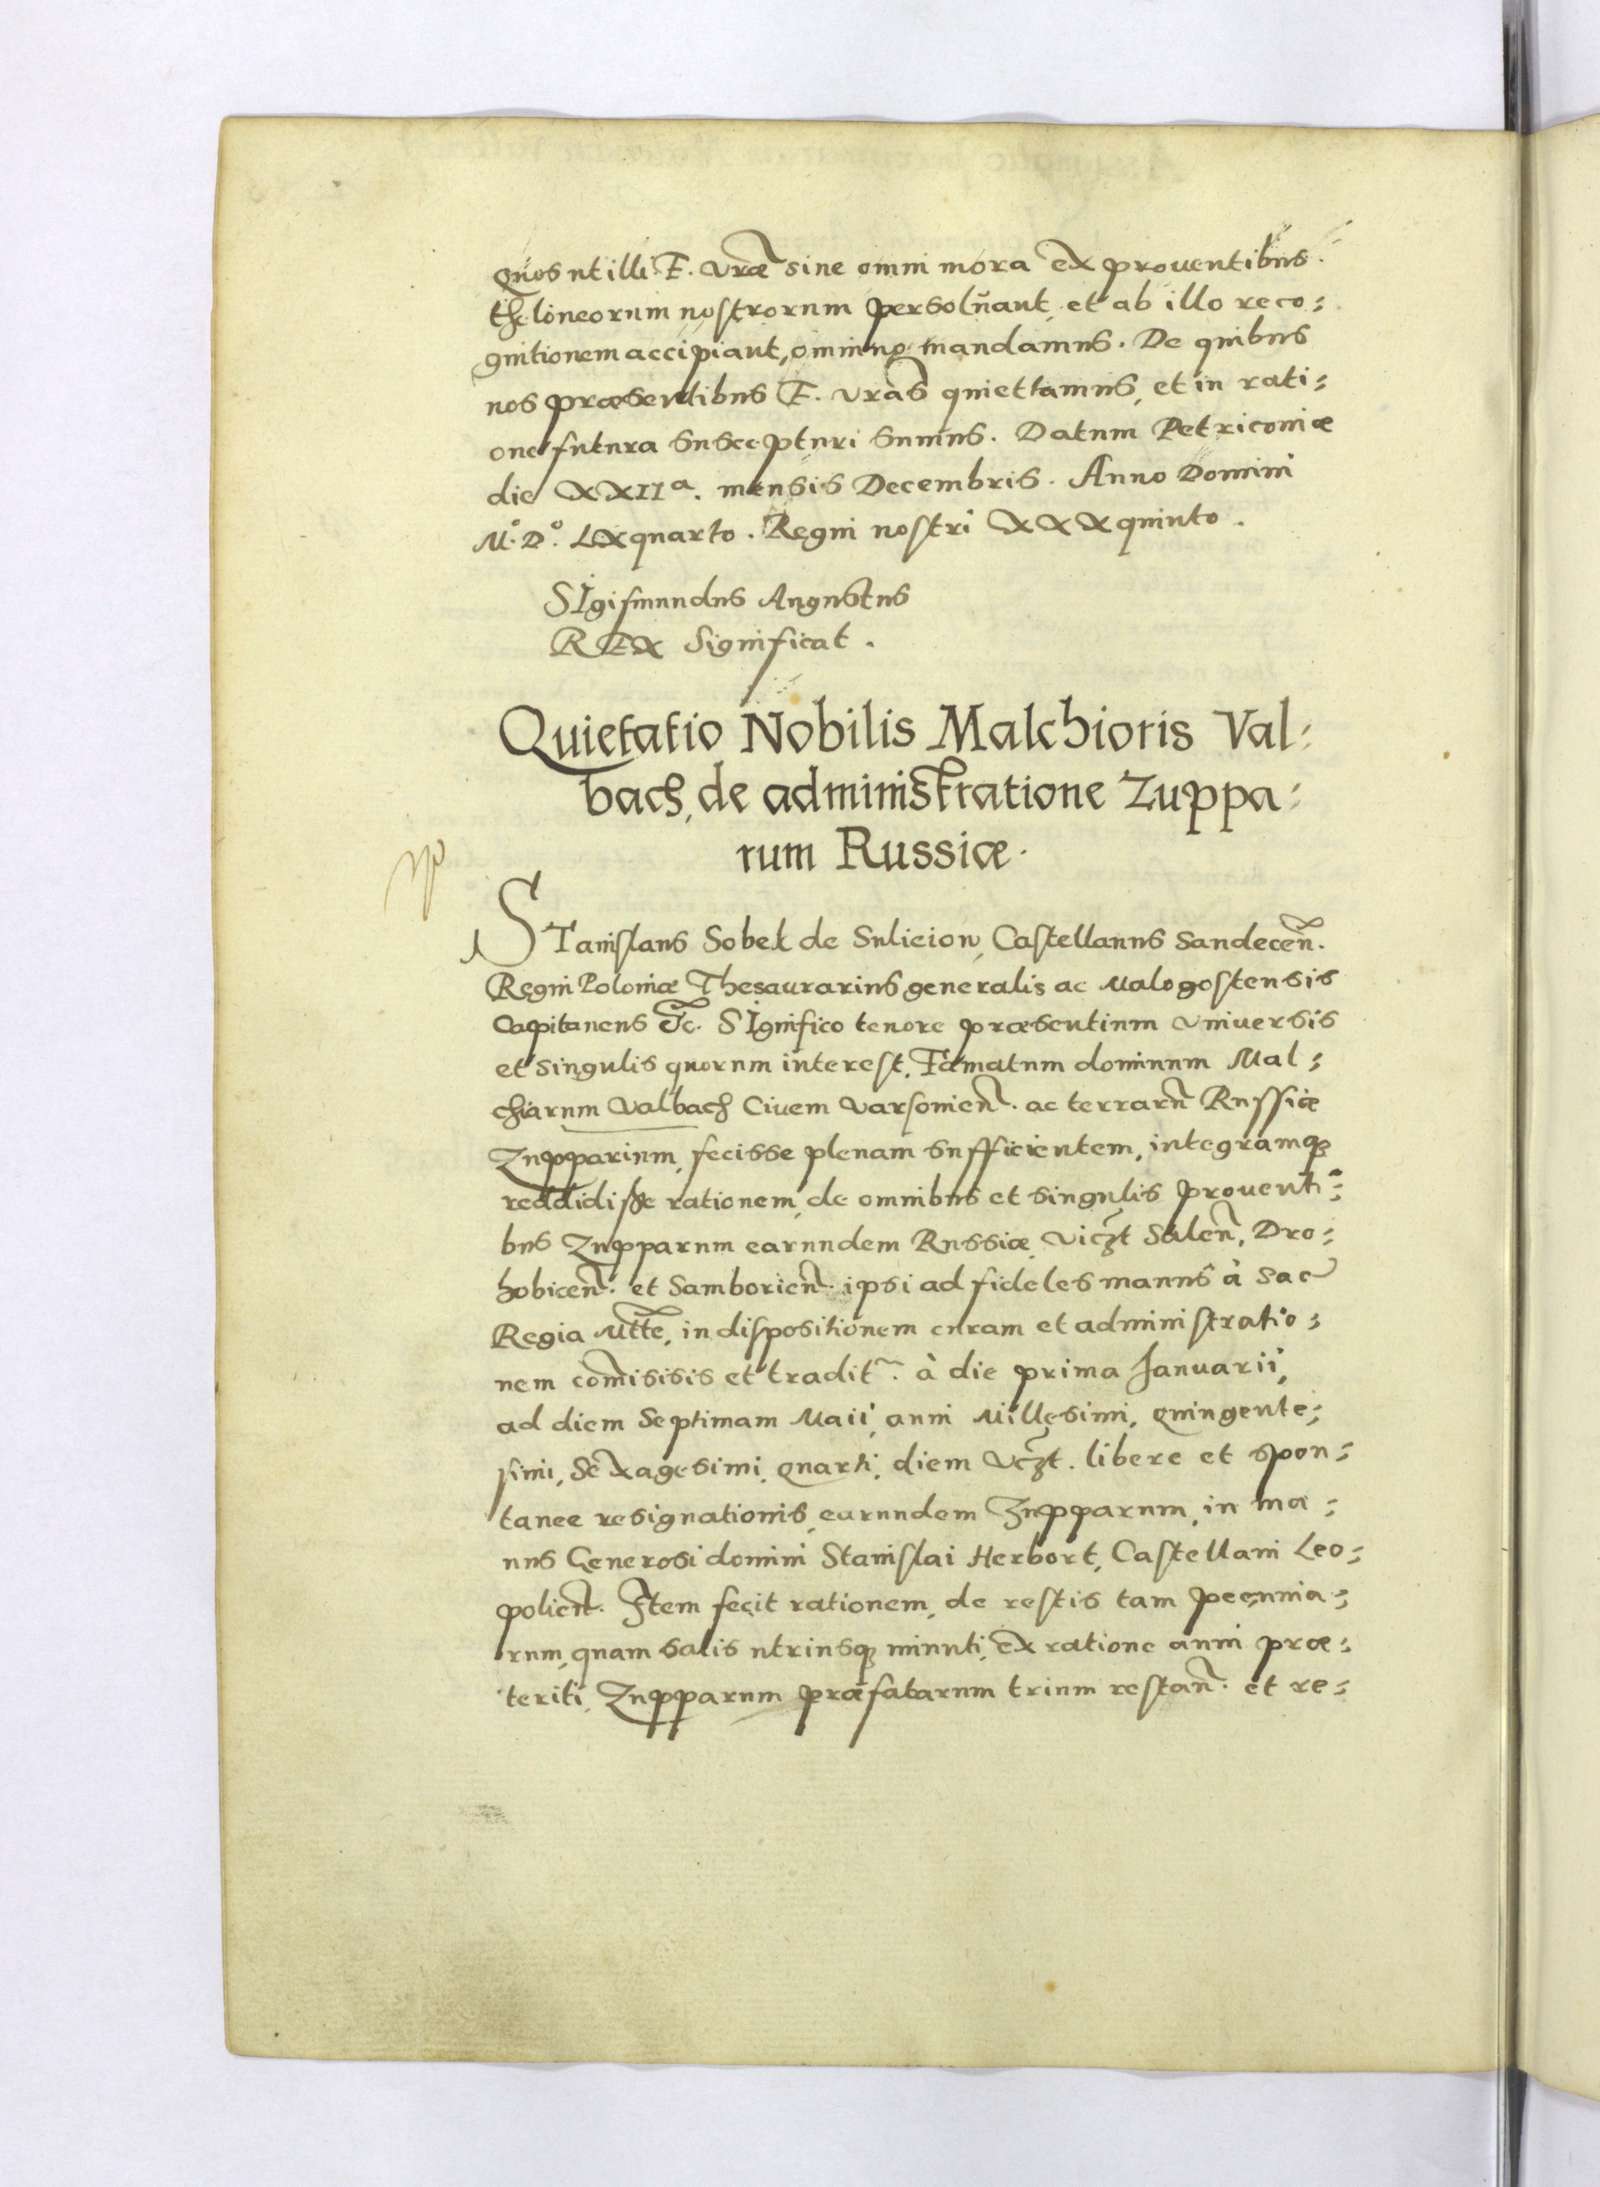 Quos ut illi F. Vrãe sine omni mora ex prouentibus
theloneorum nostrorum persoluant, et ab illo reco⸗
gnitionem accipiant, omnino mandamus. De quibus
nos præsentibus F. Vrãs quiettamus, et in rati⸗
one futura suscepturi sumus. Datum Petricouiæ
die XXIIa. mensis Decembris. Anno Domini
M.º D.º LXquarto. Regni nostri XXXquinto.
SIgismundus Augustus
REX Significat.
Quietatio Nobilis Malchioris Val⸗
bach, de administratione Zuppa⸗
rum Russiæ.
STanislaus Sobek de Suliciou, Castellanus Sandeceñ.
Regni Poloniæ Thesaurarius generalis ac Malogostensis
Capitaneus Etc. SIgnifico tenore præsentium Vniuersis
et singulis quorum interest, Famatum dominum Mal⸗
chiarum Valbach Ciuem Varsouieñ. ac terrarũ Russiæ
Zupparium, fecisse plenam sufficientem, integramq̃
reddidisse rationem, de omnibus et singulis prouenti⸗
bus Zupparum earundem Russiæ, Viczt Saleñ, Dro⸗
hobiceñ. et Samborieñ. ipsi ad fideles manus à Sac
Regia Mtte, in dispositionem curam et administratio⸗
nem com̃isisis et tradit~. à die prima Januarii,
ad diem Septimam Maii, anni Millesimi, Quingente⸗
simi, Sexagesimi, Quarti, diem Vczt. libere et spon⸗
tanee resignationis, earundem Zupparum, in ma⸗
nus Generosi domini Stanislai Herbort, Castellani Leo⸗
polieñ. Item fecit rationem, de restis tam pecunia⸗
rum, quam salis utriusq̃ minuti, ex ratione anni præ⸗
teriti, Zupparum præfatarum trium restañ. et re⸗